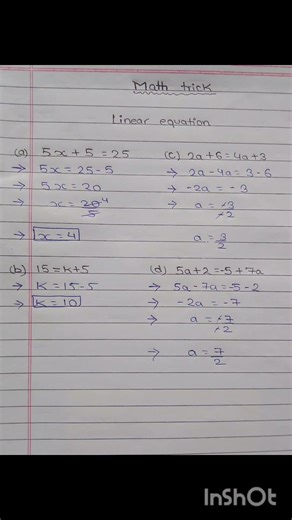 Math trick
Linear equation
(a) 5x + 5 = 25
→ 5x = 25 - 5
→ 5x = 20
→ x = 20/5 4
→ x = 4
(b) 15 = k + 5
→ k = 15 - 5
→ k = 10
(c) 2a + 6 = 4a + 3
→ 2a - 4a = 3 - 6
→ -2a = -3
→ a = -3/-2
a = 3/2
(d) 5a + 2 = -5 + 7a
→ 5a - 7a = -5 - 2
→ -2a = -7
→ a = -7/-2
→ a = 7/2
InShOt